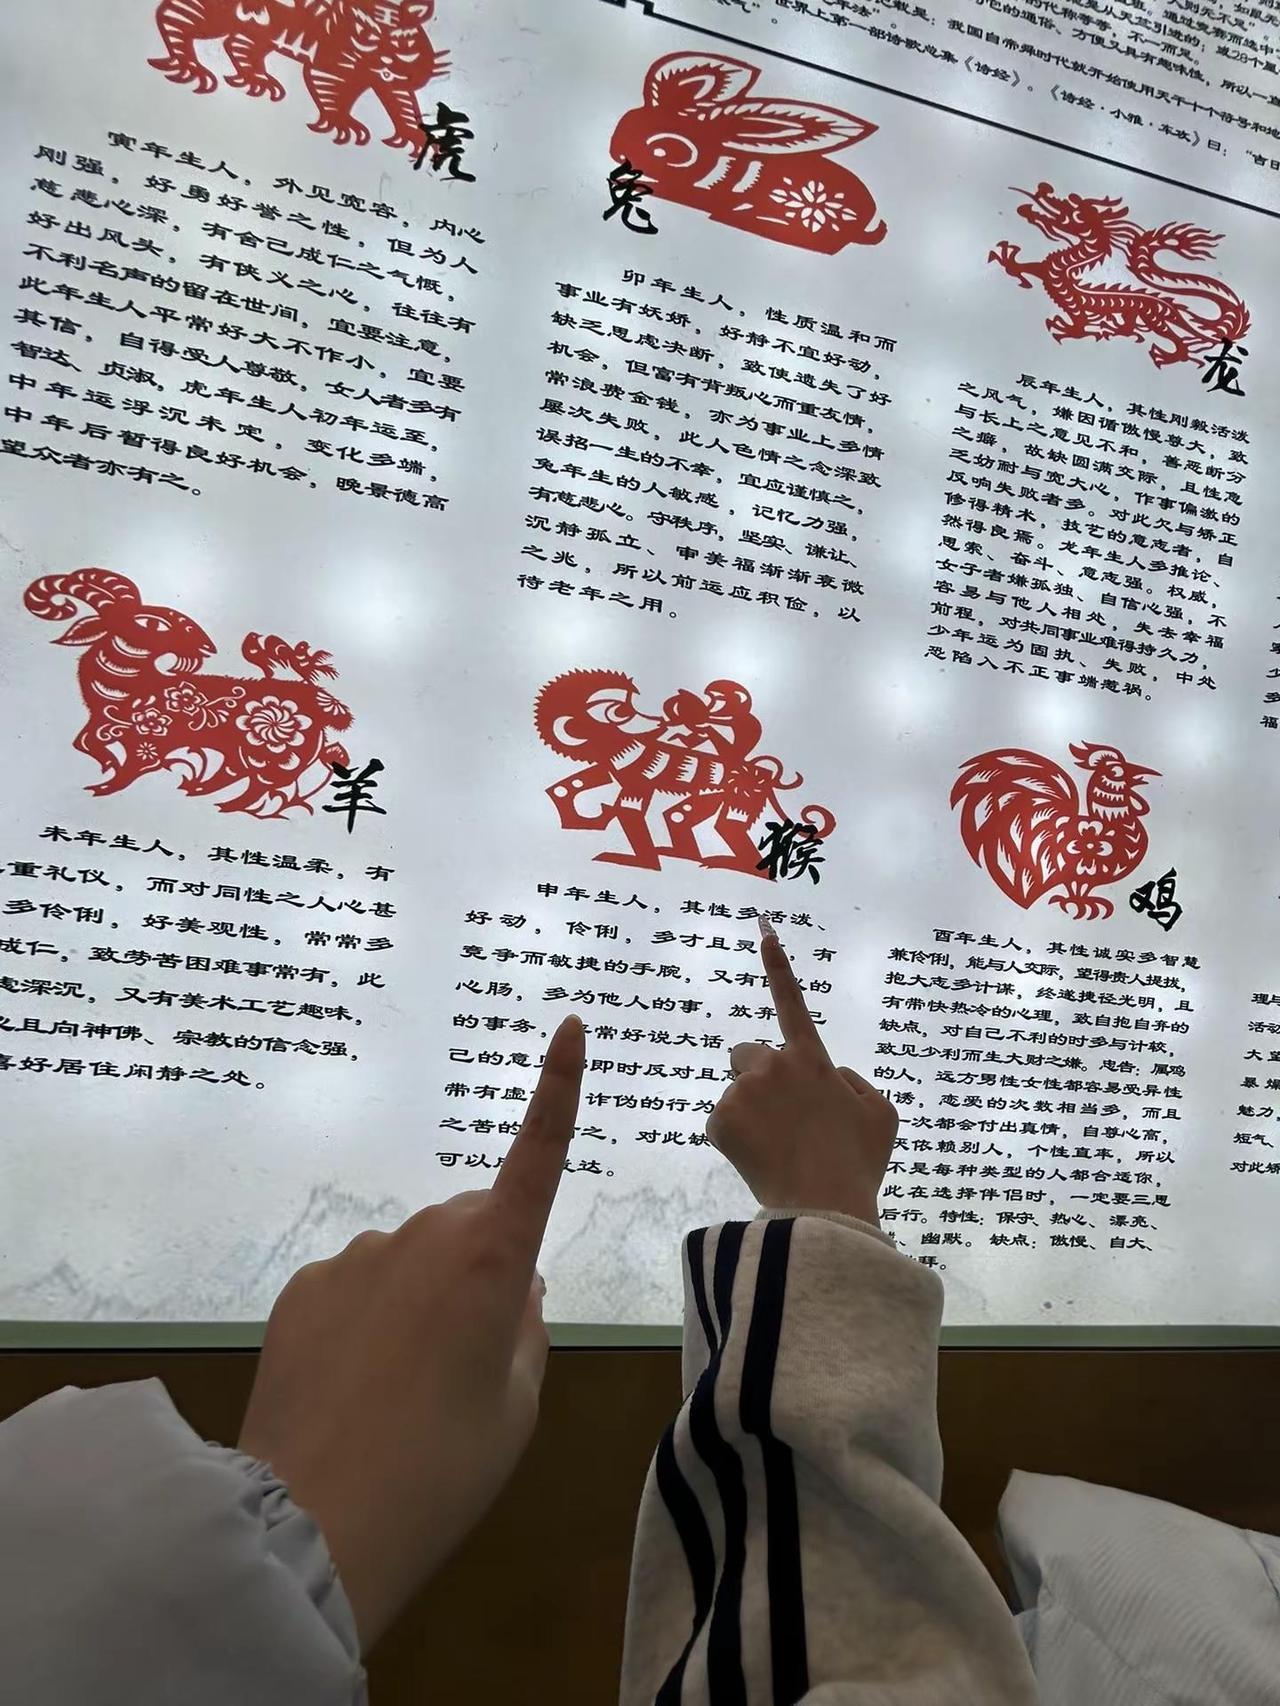 虎
寅年生人，外见宽容，内心
刚强，好勇好誉之性，但为人
慈悲心深，有舍己成仁之气慨，
好出风头，有侠义之心，往往有
不利名声的留在世间，宜要注意，
此年生人平常好大不作小，宜要
其信，自得受人尊敬，女人者多有
智达、贞淑，虎年生人初年运至，
中年运浮沉未定，变化多端，
中年后暂得良好机会，晚景德高
望众者亦有之。
兔
卯年生人，性质温和而
事业有妖娇，好静不宜好动，
缺乏思虑决断，致使遗失了好
机会，但富有背叛心而重友情，
常浪费金钱，亦为事业上多情
屡次失败，此人色情之念深致
误招一生的不幸，宜应谨慎之，
兔年生的人敏感，记忆力强，
有慈悲心。守秩序，坚实、谦让、
沉静孤立、审美福渐渐衰微
之兆，所以前运应积俭，以
待老年之用。
世界上第一部诗歌总集《诗经》。《诗经·小雅·车攻》曰：“吉日
我国自帝舜时代就开始使用天干十个符号和地
龙
辰年生人，其性刚毅活泼
之风气，嫌因循傲慢尊大，致
与长上之意见不和，善恶断分
之癖，故缺圆满交际，且性急
乏妨耐与宽大心，作事偏激的
反响失败者多。对此欠与矫正
修得精术，技艺的意志者，自
然得良焉。龙年生人多推论、
思索、奋斗、意志强。权威，
女子者嫌孤独、自信心强，不
容易与他人相处，失去幸福
前程，对共同事业难得持久力，
少年运为固执、失败，中处
恐陷入不正事端惹祸。
羊
未年生人，其性温柔，有
重礼仪，而对同性之人心甚
多伶俐，好美观性，常常多
成仁，致劳苦困难事常有，此
虑深沉，又有美术工艺趣味，
且向神佛、宗教的信念强，
喜好居住闲静之处。
猴
申年生人，其性多活泼、
好动，伶俐，多才且灵，有
竞争而敏捷的手腕，又有的
心肠，多为他人的事，放弃己
的事务，常好说大话，
己的意即时反对且
带有虚诈伪的行为
之苦的之，对此缺
可以达。
鸡
酉年生人，其性诚实多智慧
兼伶俐，能与人交际，望得贵人提拔，
抱大志多计谋，终遂捷径光明，且
有带快热冷的心理，致自抱自弃的
缺点，对自己不利的时多与计较，
致见少利而生大财之嫌。忠告：属鸡
的人，远方男性女性都容易受异性
引诱，恋爱的次数相当多，而且
一次都会付出真情，自尊心高，
依赖别人，个性直率，所以
不是每种类型的人都合适你，
此在选择伴侣时，一定要三思
后行。特性：保守、热心、漂亮、
、幽默。缺点：傲慢、自大、
拜。
福
理与
活动
大望
暴燥
魅力，
短气、
对此矫